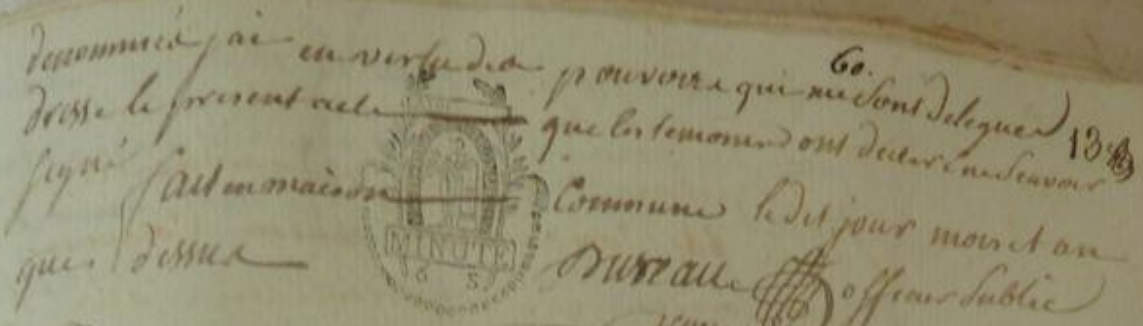 60.
denommés j'ai en vertu des pouvoirs qui me sont delegués
dressé le present acte que les temoins ont declaré ne savoir
signé fait en maison commune le dit jour mois et an
que dessus Bureau officier public
MINUTE